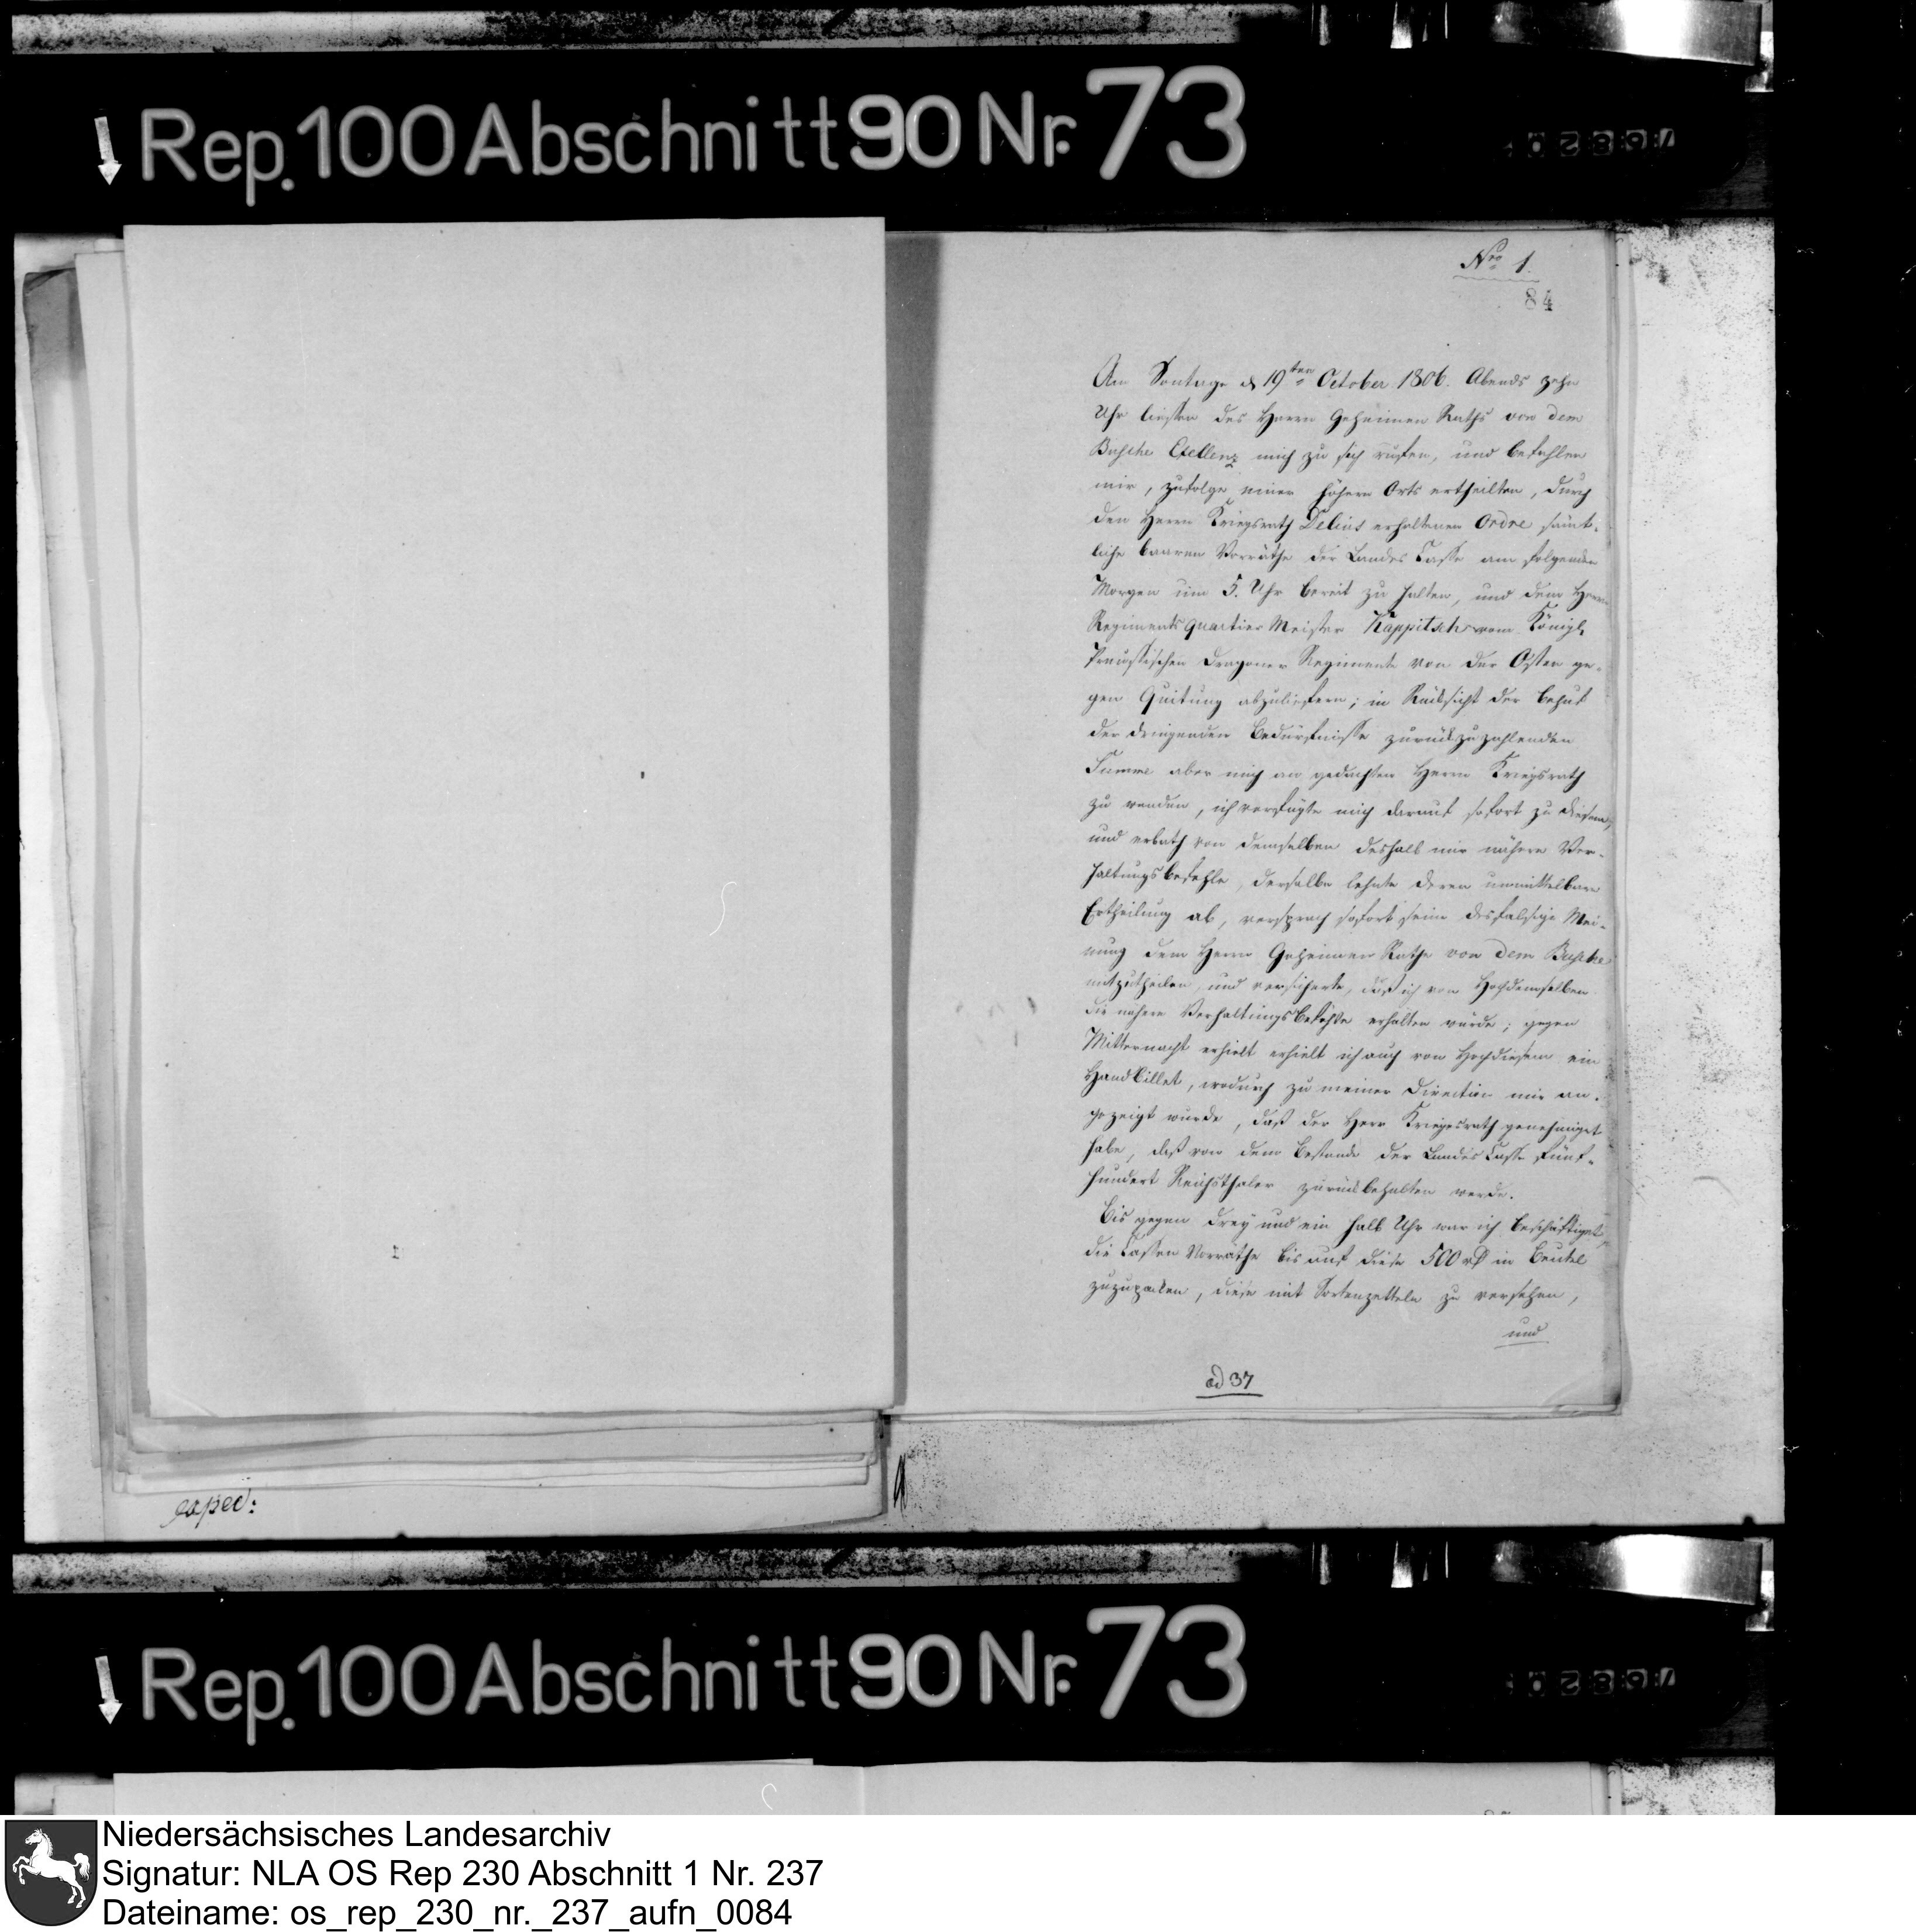 Rep. 100 Abschnitt 90 Nr. 73
Nro 1.
84
Am Sontage d 19ten October 1806. Abends zehn
Uhr liessen des Herrn Geheimen Raths von dem
Bussche Excellenz mich zu sich rufen, und befahlen
mir, zufolge einer höhern Orts ertheilten, durch
den Herrn Kriegsrath Delius erhaltenen Ordre sämt-
liche baaren Vorräthe der Landes Casse am folgenden
Morgen um 5. Uhr bereit zu halten, und dem Herrn
Regiments quartier Meister Kappitsch vom Königl.
Preussischen Dragoner Regimente von der Osten ge-
gen Quitung abzuliefern; in Rücksicht der behuf
der dringenden Bedürfnisse zurückzuzahlenden
Summe aber mich an gedachten Herrn Kriegsrath
zu wenden, ich verfügte mich darauf sofort zu diesem,
und erbath von demselben deshalb mir nähere Ver-
haltungsbefehle, derselbe lehnte deren unmittelbare
Ertheilung ab, versprach sofort seine desfalsige Mei-
nung dem Herrn Geheimen Rathe von dem Bussche
mitzutheilen, und versicherte, daß ich von Hochdemselben
die nähere Verhaltungsbefehle erhalten würde; gegen
Mitternacht erhielt erhielt ich auch von Hochdiesem ein
Handbillet, wodurch zu meiner Direction mir an-
gezeigt wurde, daß der Herr Kriegesrath genehmiget
habe, daß von dem Bestande der Landes Casse fünf-
hundert Reichsthaler zurückbehalten werde.
Bis gegen drey und ein halb Uhr war ich beschäftiget,
die Cassen Vorräthe bis auf diese 500 rt in Beutel
zuzupacken, diese mit Sortenzetteln zu versehen,
und
ad 37
exped:
Rep. 100 Abschnitt 90 Nr. 73
Niedersächsisches Landesarchiv
Signatur: NLA OS Rep 230 Abschnitt 1 Nr. 237
Dateiname: os_rep_230_nr._237_aufn_0084